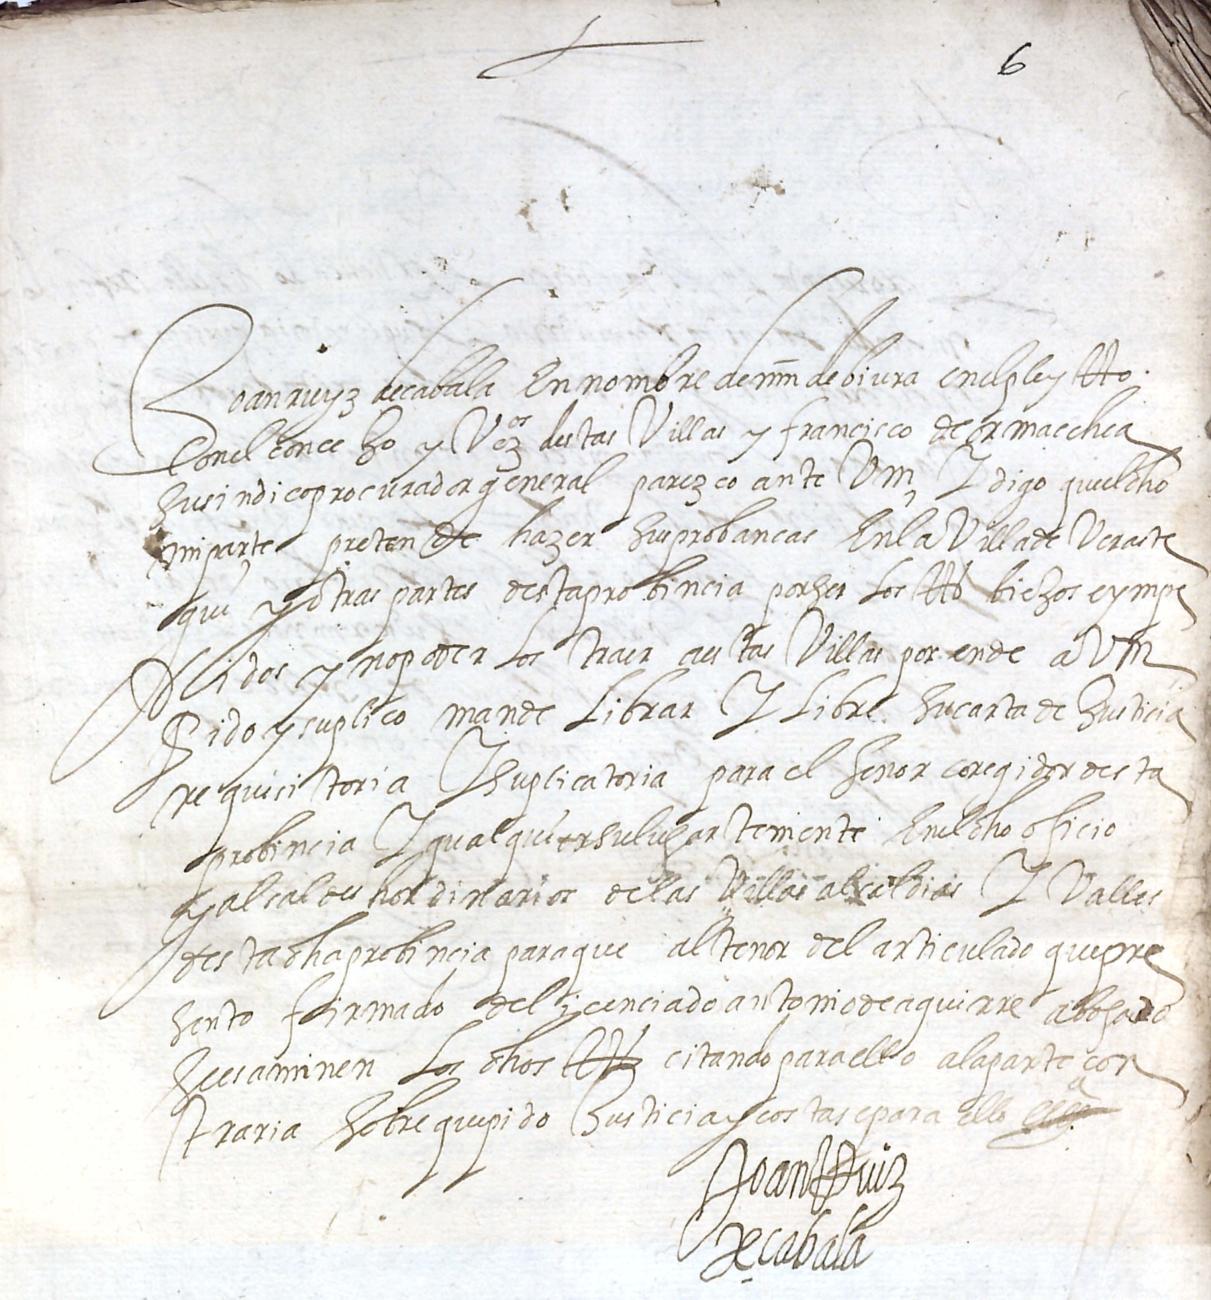 6
Joan ruyz de cabala En nombre de mn de obiura en el pleytto
con el conceho y Vezos destas Villas y francisco de ormaechea
su sindico procurador general parezco ante Vm, I digo que el dho
mi parte pretende hazer sus probancas En la Villa de Veraste
gui y otras partes desta probincia por ser Los tto biehos e ympe
didos y no poder Los traer a estas Villas por ende a Vm
Pido y suplico mande Librar I Libre su carta de Justicia
requisitoria I suplicatoria para el senor coregidor desta
probincia I qualquier su lugar teniente En el dho oficio
y alcaldes hordinarios de las Villas alcaldias I Valles
desta dha probincia para que al tenor del articulado que pre
sento firmado del licenciado antonio de aguirre abogado
se esaminen Los dhos tto citando para ello a la parte con
traria sobre que pido Justicia y costas e para Ello etta
Joan Ruiz
de cabala